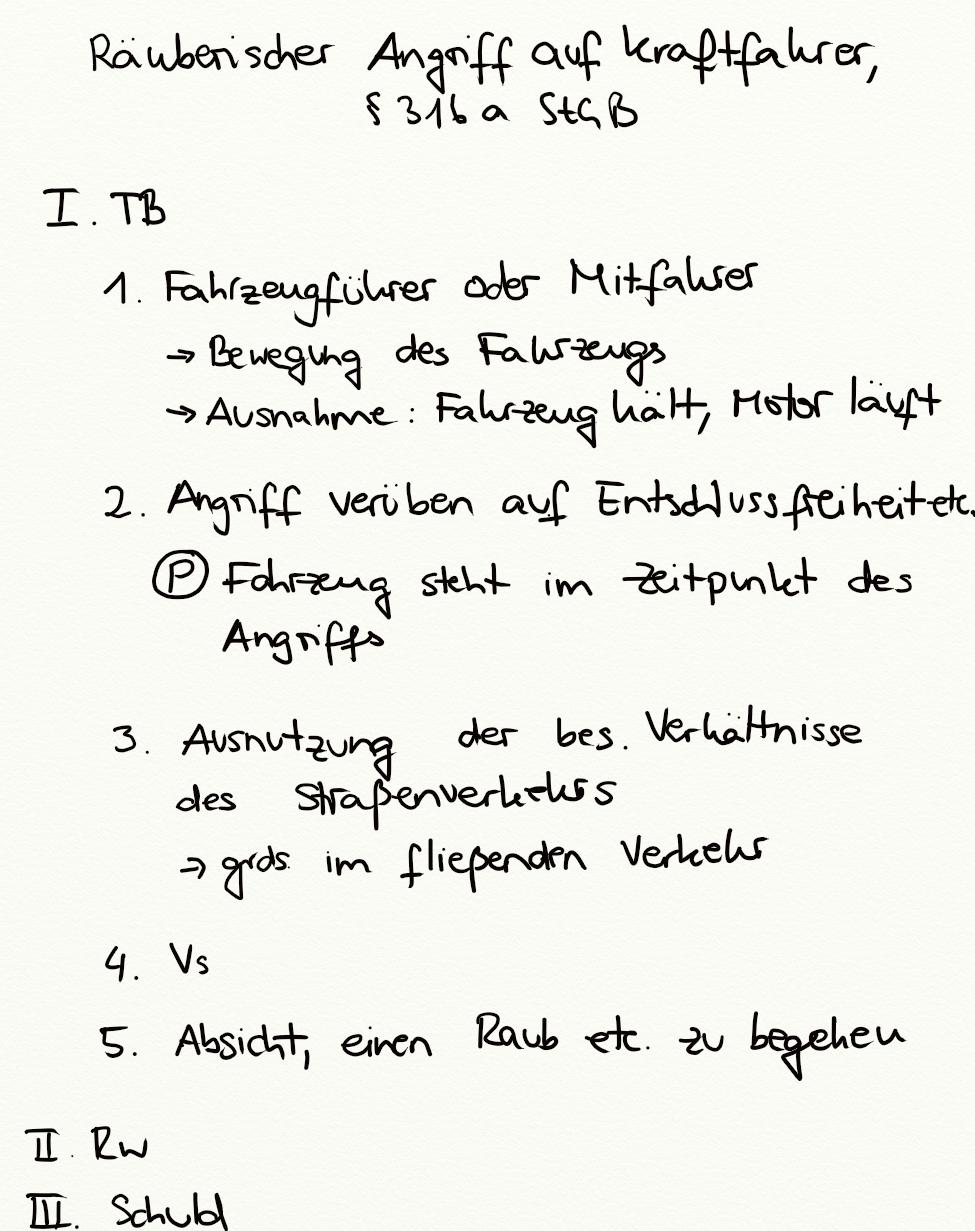 Räuberischer Angriff auf Kraftfahrer,
§ 316 a StGB
I. TB
1. Fahrzeugführer oder Mitfahrer
→ Bewegung des Fahrzeugs
→ Ausnahme: Fahrzeug hält, Motor läuft
2. Angriff verüben auf Entschlussfreiheit etc.
Ⓟ Fahrzeug steht im Zeitpunkt des
Angriffs
3. Ausnutzung der bes. Verhältnisse
des Straßenverkehrs
→ grds. im fließenden Verkehr
4. Vs
5. Absicht, einen Raub etc. zu begehen
II. RW
III. Schuld